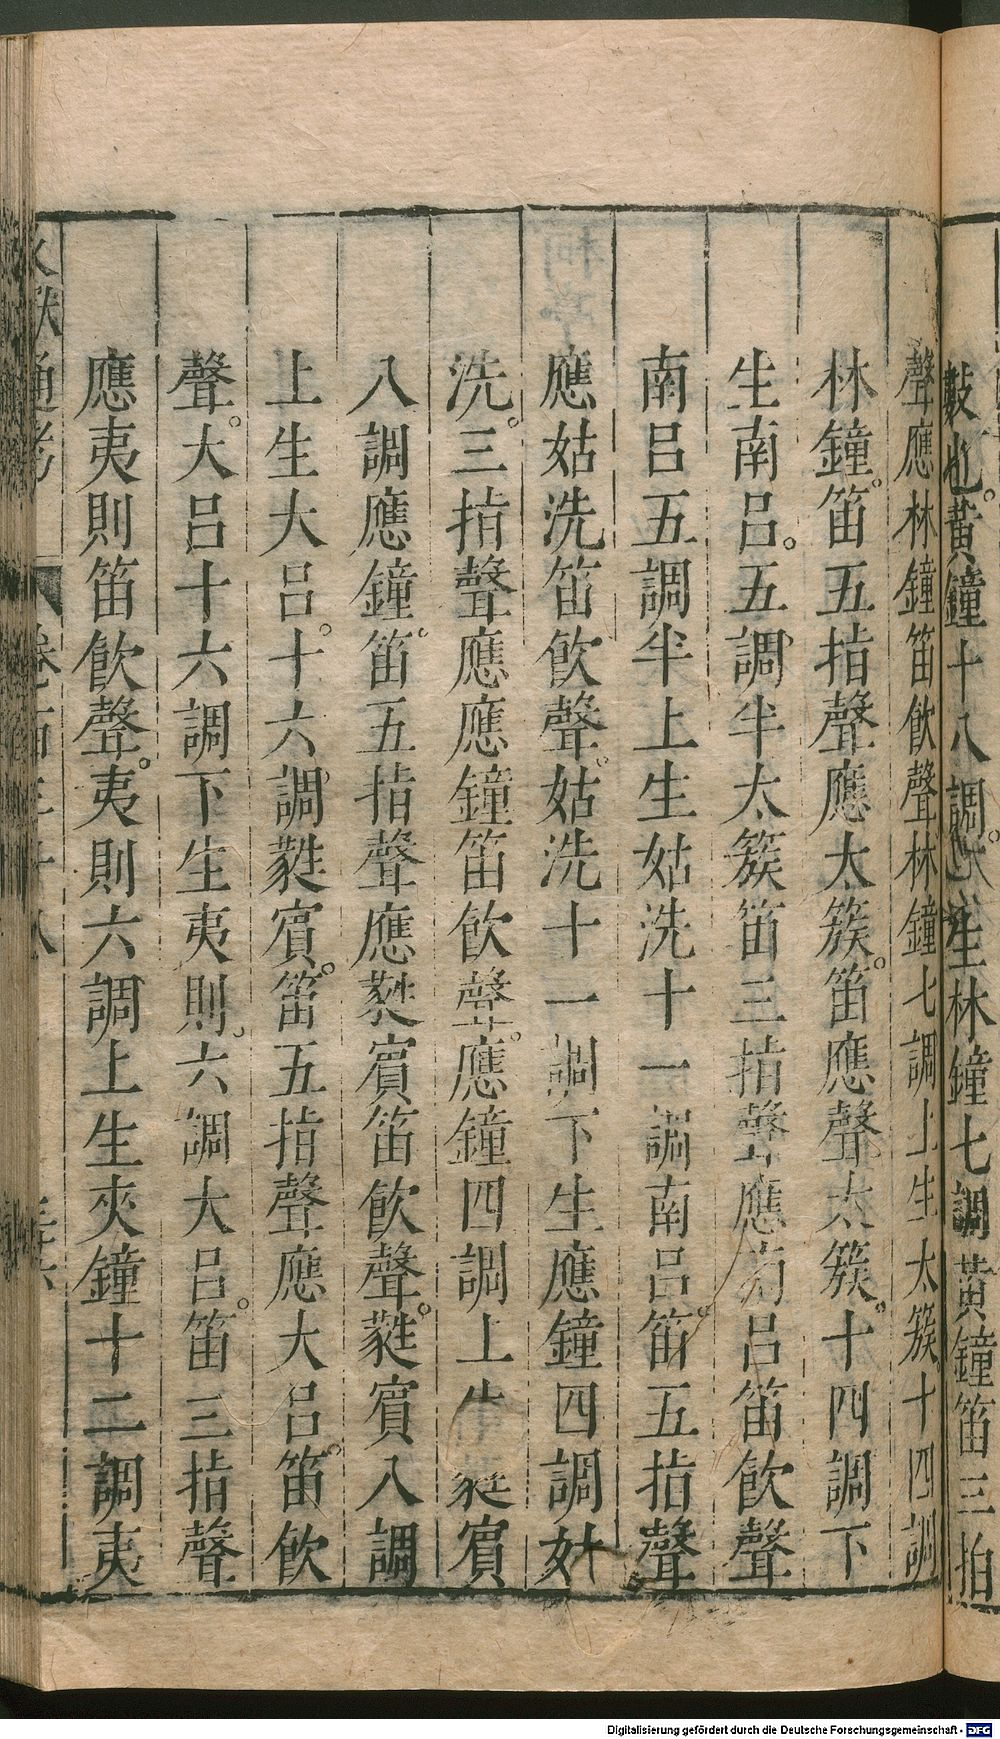 數也。黃鐘十八調。下生林鐘七調黃鐘笛三指
聲應林鐘笛飲聲林鐘七調上生太簇。十四調
林鐘。笛五指聲應太簇。笛應聲太簇。十四調下
生南呂。五調半太簇笛三指聲應南呂笛飲聲
南呂五調半上生姑洗十一調南呂。笛五指聲
應姑洗笛飲聲。姑洗十一調下生應鐘四調姑
洗。三指聲應應鐘笛飲聲。應鐘四調上生蕤賓
八調應鐘。笛五指聲應蕤賓笛飲聲。蕤賓八調
上生大呂。十六調蕤賓。笛五指聲應大呂。笛飲
聲。大呂十六調下生夷則。六調大呂。笛三指聲
應夷則笛飲聲。夷則六調上生夾鐘十二調夷
通考 卷一百三十八
Digitalisierung gefördert durch die Deutsche Forschungsgemeinschaft - DFG